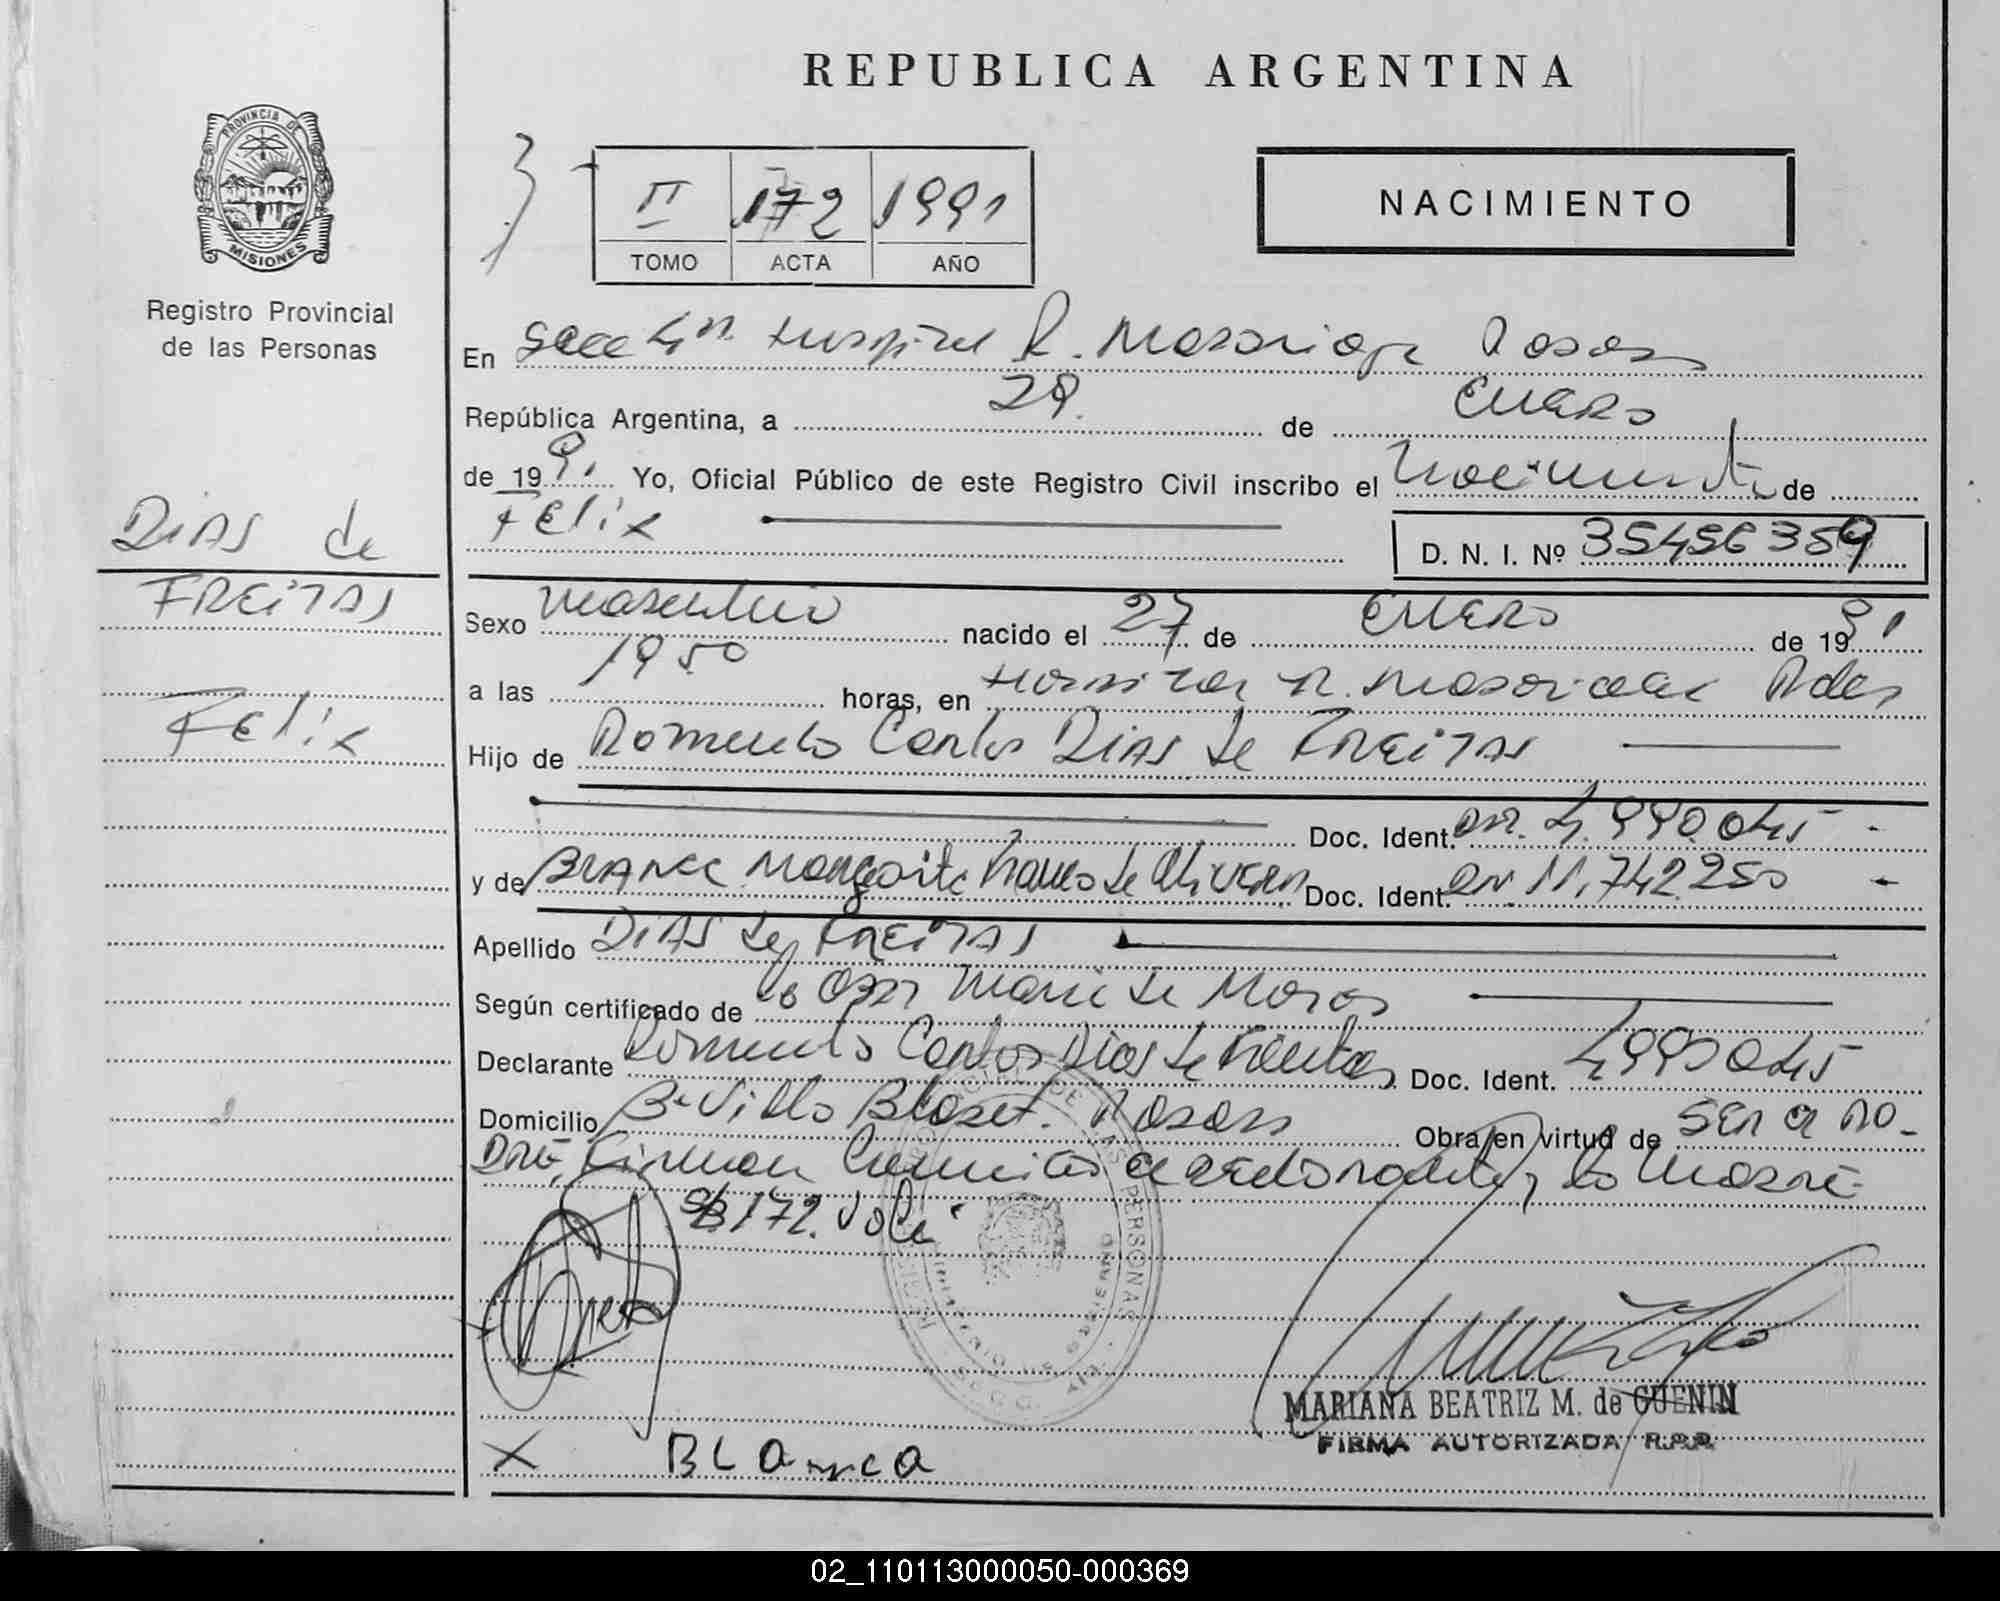 REPUBLICA ARGENTINA
PROVINCIA DE
MISIONES
Registro Provincial
de las Personas
II 172 1991
TOMO ACTA AÑO
NACIMIENTO
En Secc Hospital R. Madariaga Posadas
República Argentina, a 28. de ENERO
de 1991 Yo, Oficial Público de este Registro Civil inscribo el nacimiento de
Felix
D. N. I. Nº 35456359
DIAS de
FREITAS
Felix
Sexo masculino nacido el 27 de ENERO de 1991
a las 19 50 horas, en Hospital R. Madariaga Pdas
Hijo de Romualdo Carlos DIAS de FREITAS
Doc. Ident. 4.990.045 -
y de BLANCA Margarita de Olivera Doc. Ident. 11.742.250 -
Apellido DIAS de FREITAS
Según certificado de Maria de
Declarante Romualdo Carlos Dias de Freitas Doc. Ident. 4990045
Domicilio Bº Villa Blaset. Posadas Obra en virtud de SER el PA-
DRE, Firman la MADRE
172. Vale
MARIANA BEATRIZ M. de GUENIN
FIRMA AUTORIZADA R.P.P.
X BLANCA
02_110113000050-000369